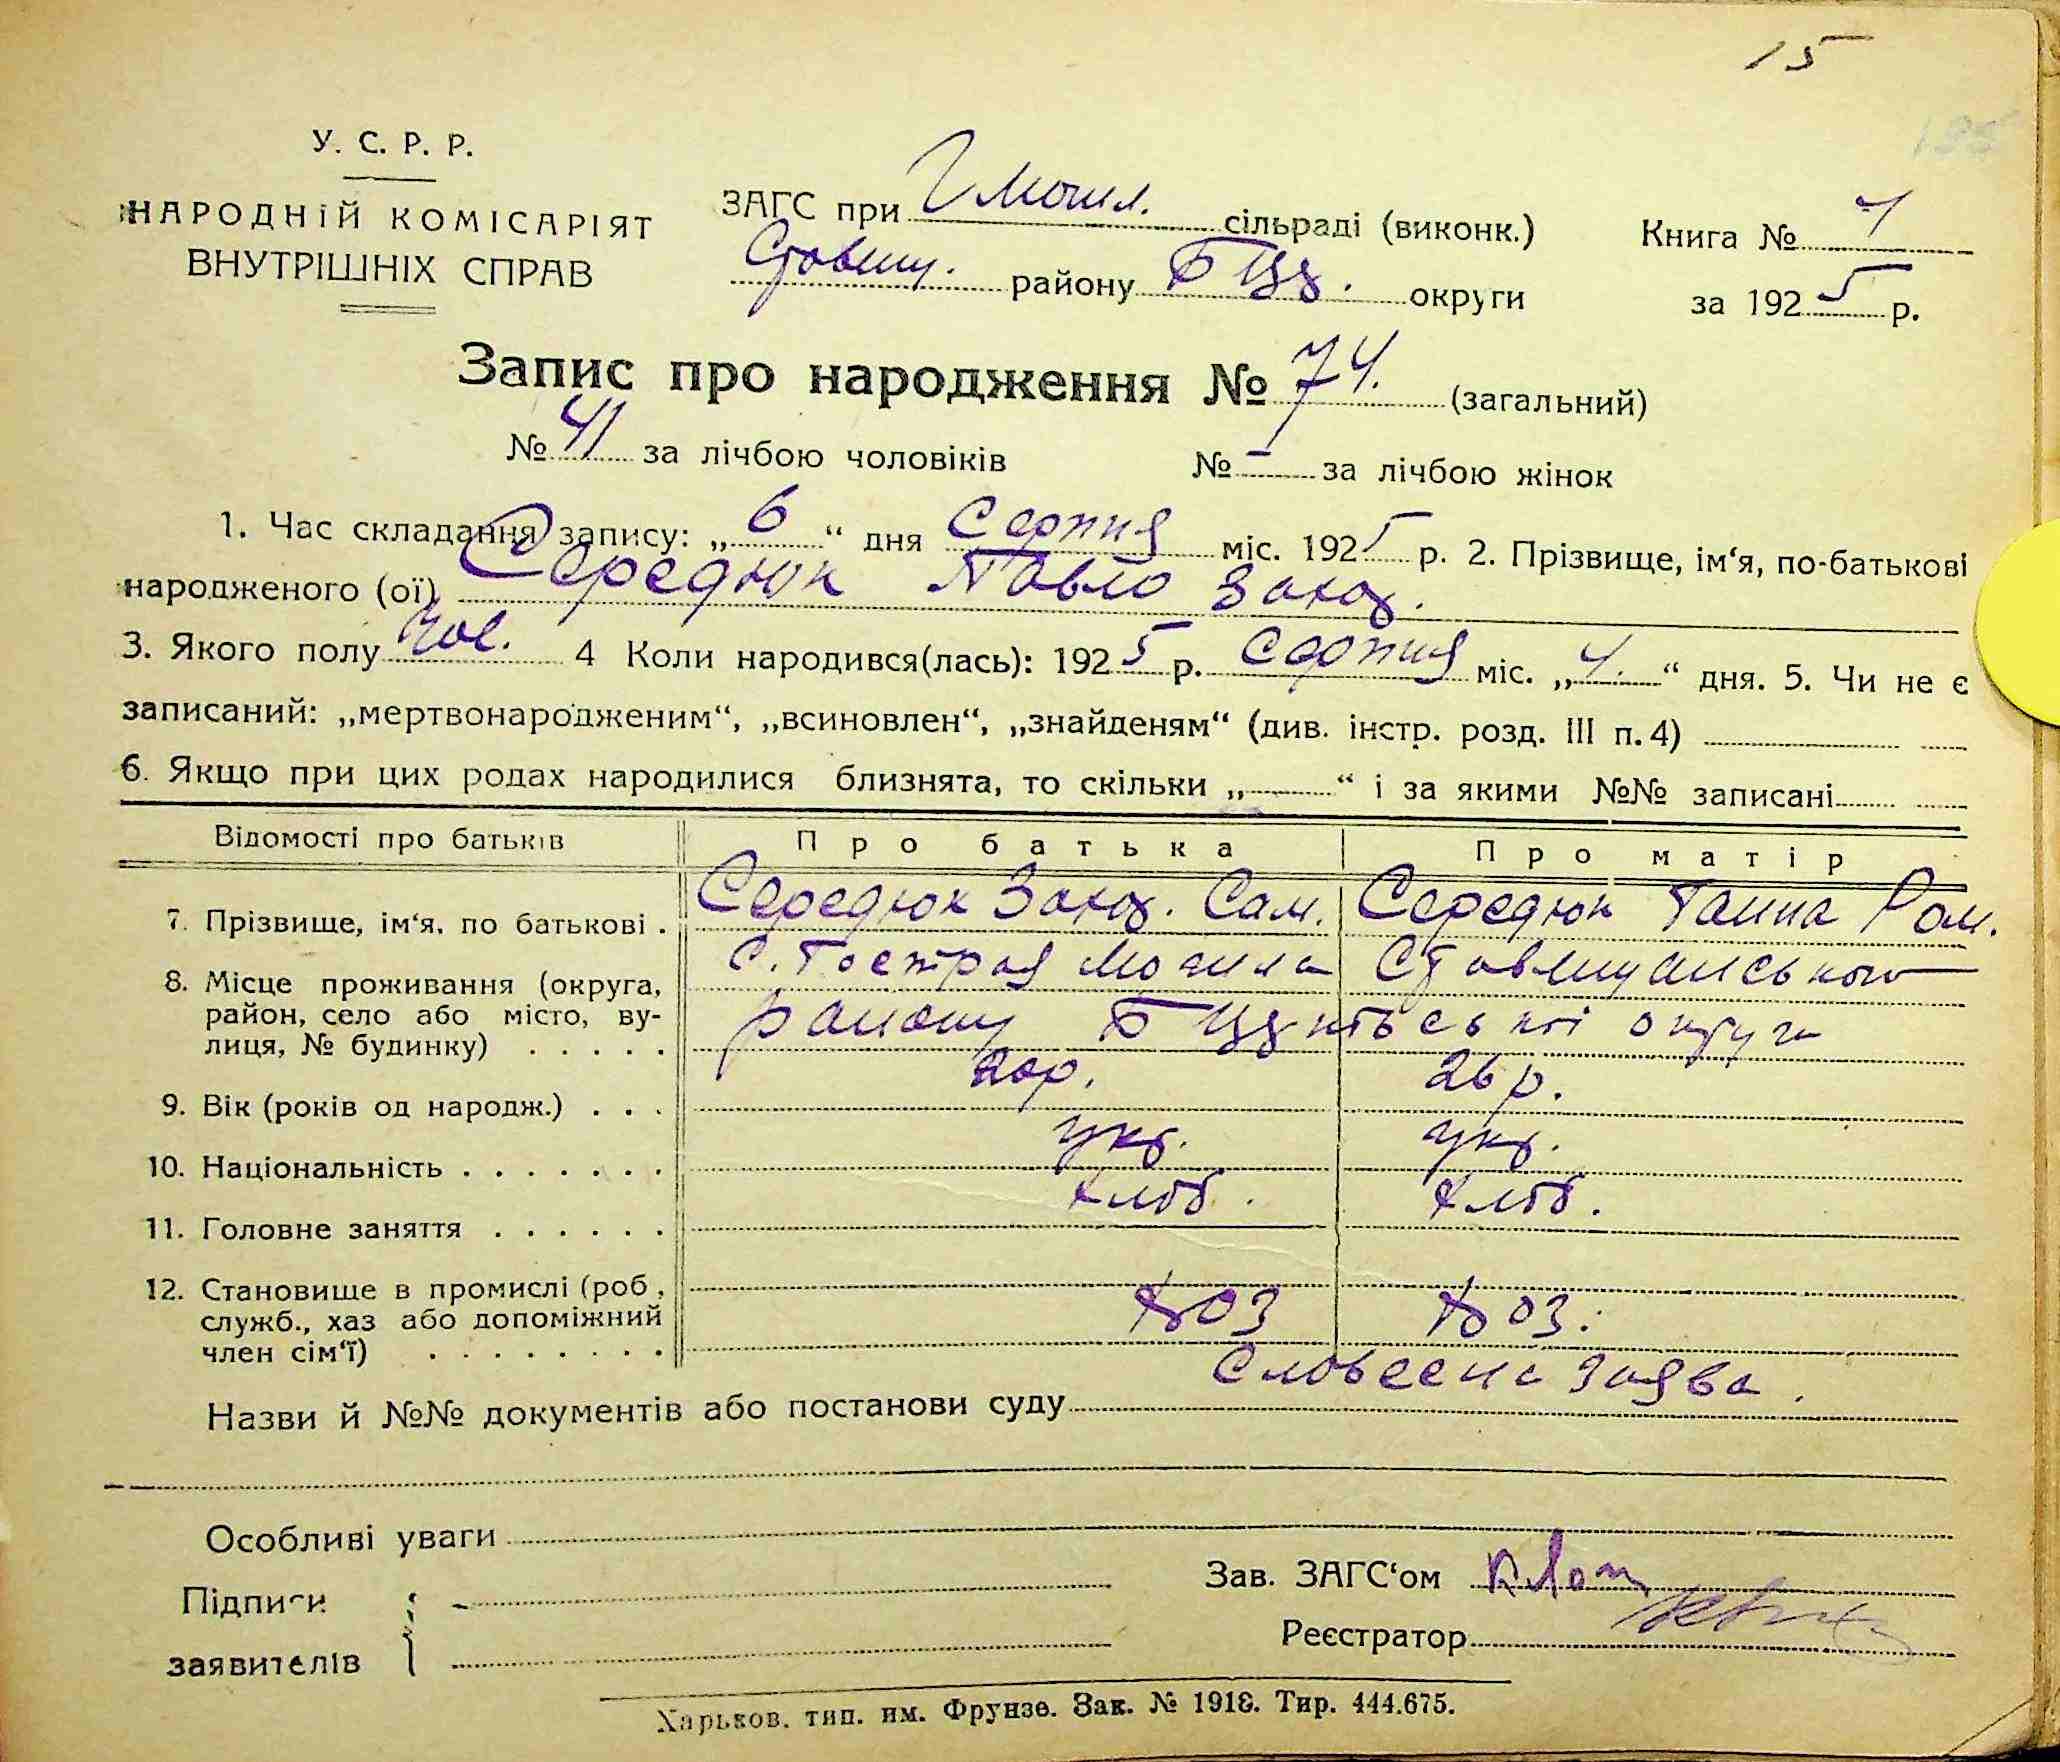 15
У. С. Р. Р.
НАРОДНІЙ КОМІСАРІЯТ
ВНУТРІШНІХ СПРАВ
ЗАГС при Г Могил. сільраді (виконк.)
Ставищ. району Б Цр. округи
Книга № 1
за 1925 р.
Запис про народження № 74. (загальний)
№ 41 за лічбою чоловіків № — за лічбою жінок
1. Час складання запису: „6“ дня Серпня міс. 1925 р. 2. Прізвище, ім‘я, по-батькові
народженого (ої) Середюк Павло Захар.
3. Якого полу Чол. 4 Коли народився(лась): 1925 р. Серпня міс. „4.“ дня. 5. Чи не є
записаний: „мертвонародженим“, „всиновлен“, „знайденям“ (див. інстр. розд. III п. 4)
6. Якщо при цих родах народилися близнята, то скільки „ “ і за якими №№ записані
Відомості про батьків Про батька Про матір
7. Прізвище, ім‘я, по батькові . Середюк Захар. Сам. Середюк Ганна Ром.
8. Місце проживання (округа, район, село або місто, ву-лиця, № будинку) . . . . . с. Гострая Могила Ставищанського
району Б Церктвської округи
9. Вік (років од народж.) . . . 26 р.
10. Національність . . . . . . . укр. укр.
11. Головне заняття . . . . . . хліб. хліб.
12. Становище в промислі (роб.,
служб., хаз або допоміжний
член сім‘ї) . . . . . . . .
Назви й №№ документів або постанови суду Словесна заява.
Особливі уваги
Підписи
заявителів
Зав. ЗАГС‘ом
Реєстратор
Харьков. тип. им. Фрунзе. Зак. № 1918. Тир. 444.675.